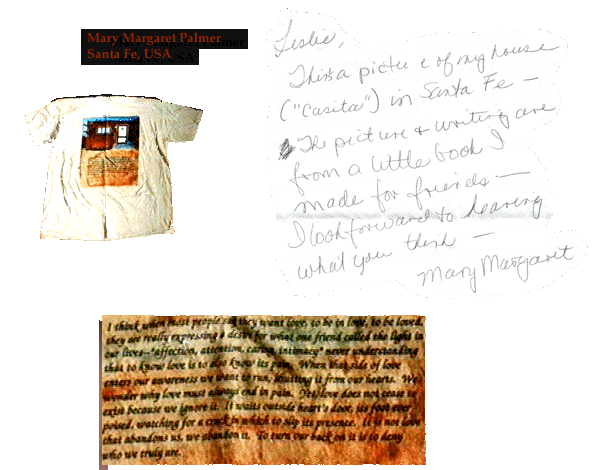 Mary Margaret Palmer
Santa Fe, USA
Leslie,
This is a picture of my house
("Casita") in Santa Fe —
The picture & writing are
from a little book I
made for friends —
I look forward to hearing
what you think —
Mary Margaret
I think when most people say they want love, to be in love, to be loved,
they are really expressing a desire for what one friend called the light in
our lives--"affection, attention, caring, intimacy" never understanding
that to know love is to also know its pain. When that side of love
enters our awareness we want to run, shutting it from our hearts. We
wonder why love must always end in pain. Yet, love does not cease to
exist because we ignore it. It waits outside heart's door, its foot ever
poised, watching for a crack in which to slip its presence. It is not love
that abandons us, we abandon it. To turn our back on it is to deny
who we truly are.